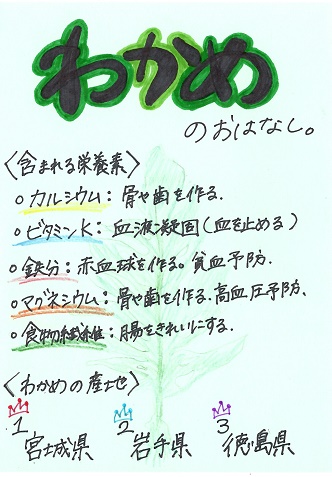 わかめ
のおはなし。
〈含まれる栄養素〉
○カルシウム：骨や歯を作る.
○ビタミンK：血液凝固(血を止める)
○鉄分：赤血球を作る。貧血予防.
○マグネシウム：骨や歯を作る.高血圧予防、
○食物繊維：腸をきれいにする.
〈わかめの産地〉
1 2 3
宮城県 岩手県 徳島県